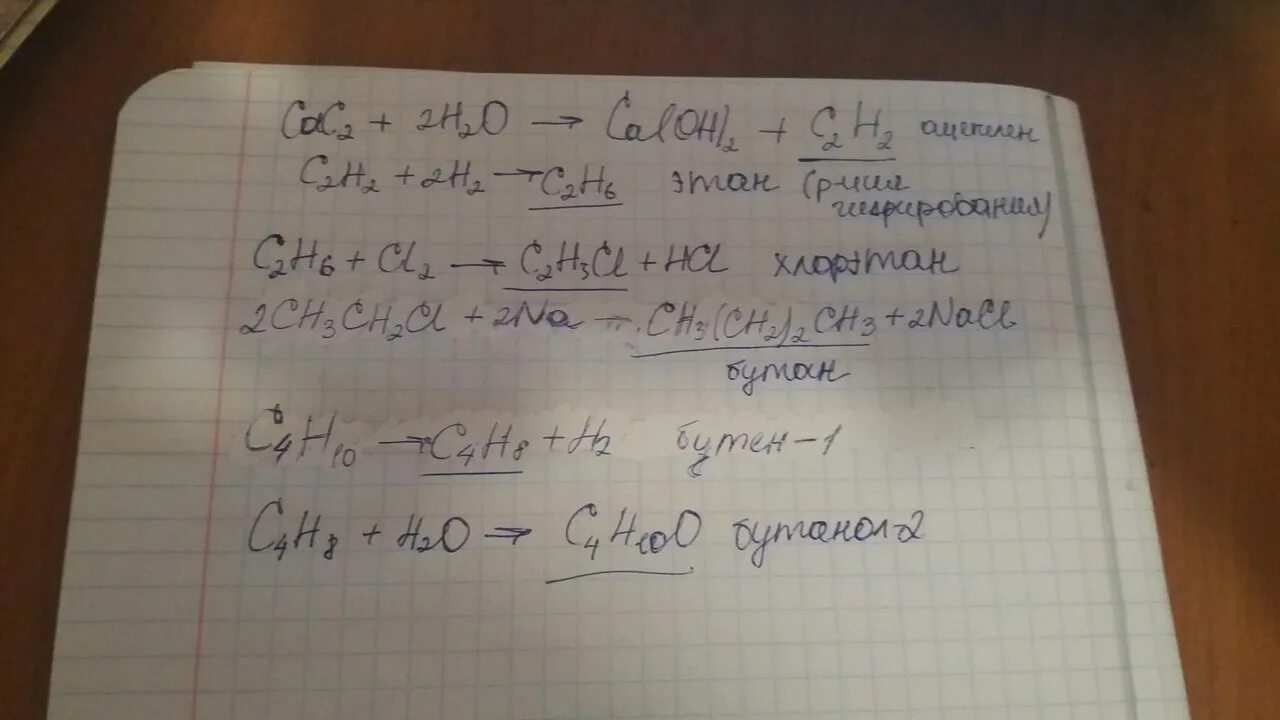 CaC₂ + 2H₂O → Ca(OH)₂ + C₂H₂ ацетилен
C₂H₂ + 2H₂ → C₂H₆ этан (р-ция
гидрирования)
C₂H₆ + Cl₂ → C₂H₅Cl + HCl хлорэтан
2CH₃CH₂Cl + 2Na → CH₃(CH₂)₂CH₃ + 2NaCl
бутан
C₄H₁₀ → C₄H₈ + H₂ бутен-1
C₄H₈ + H₂O → C₄H₁₀O бутанол-2